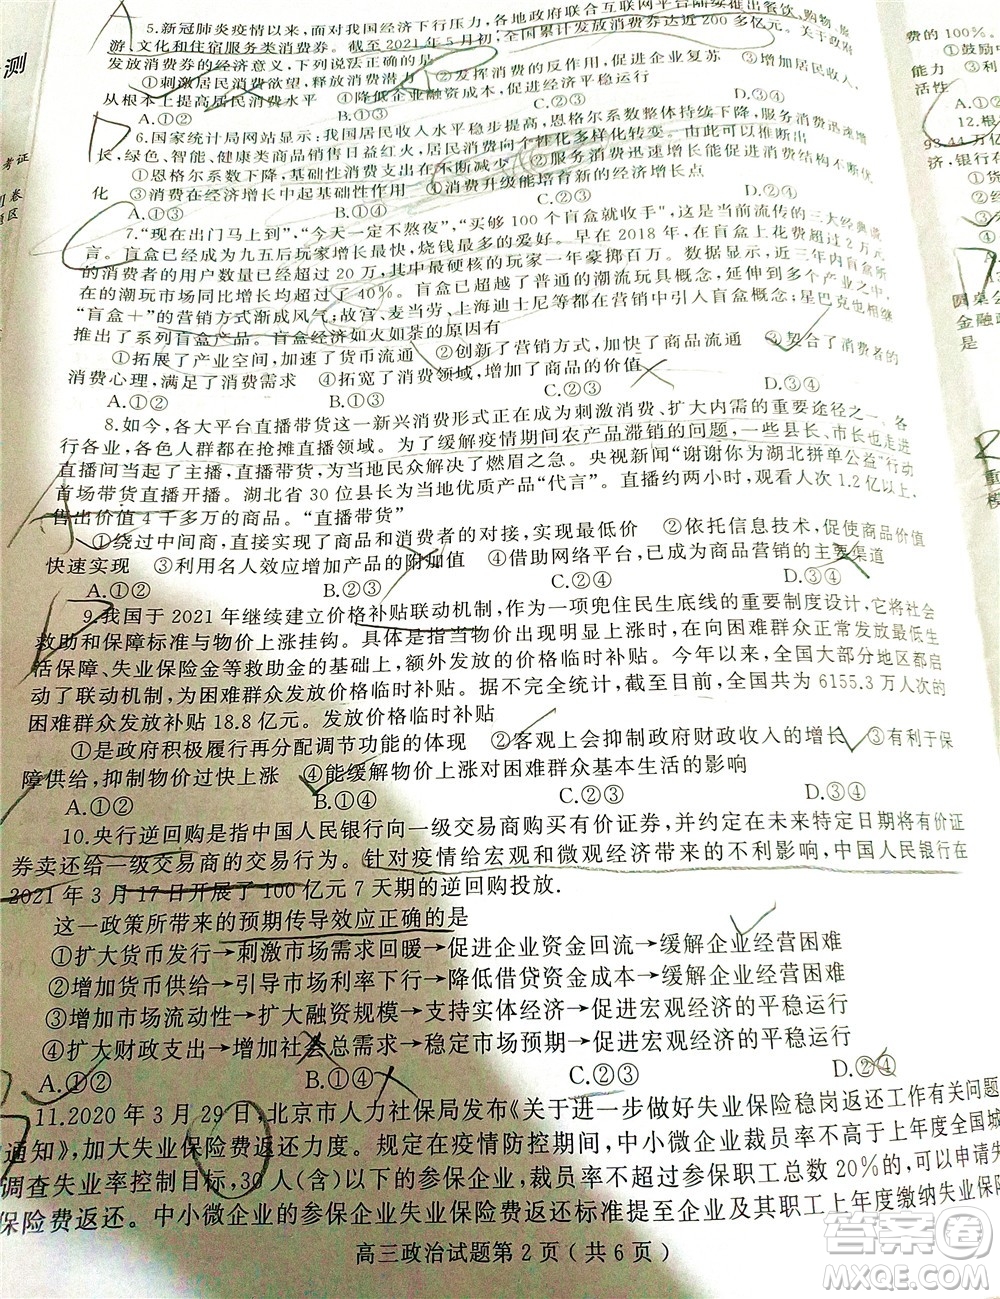 5.新冠肺炎疫情以来，面对经济下行压力，各地政府联合互联网平台陆续推出餐饮、购物、旅
游、文化和住宿服务类消费券。截至2021年5月初，全国累计发放消费券达近200多亿元。关于政府
发放消费券的经济意义，下列说法正确的是
①刺激居民消费欲望，释放消费潜力　②发挥消费的反作用，促进经济平稳运行
③降低企业融资成本，促进企业发展　④增加居民收入，
从根本上提高居民消费水平
A.①② B.①③ C.②④ D.③④
6.国家统计局网站显示：我国居民收入水平稳步提高，恩格尔系数整体持续下降，服务消费迅速增
长，绿色、智能、健康类商品销售日益红火，居民消费向个性化多样化转变。由此可以推断出
①恩格尔系数降低，基础性消费支出在不断减少　②服务消费迅速增长促进消费结构优
化　③消费在经济增长中起基础性作用　④消费升级能培育新的经济增长点
A.①③ B.①④ C.②③ D.②④
7.“现在出门马上到”，“今天一定不熬夜”，“买够100个盲盒就收手”，这是当前流传的三大经典谎
言。盲盒已经成为九五后玩家增长最多，烧钱最多的爱好。早在2018年，在盲盒上花费超过2万元
的消费者的用户数量已经达到了20万，其中最硬核的玩家一年豪掷百万。近三年内盲盒所在
的潮玩市场同比增长超过了40%。盲盒已经超越了普通的潮流玩具商品意义，延伸到了各行业，
“盲盒＋”的营销方式渐成风气；故宫、麦当劳、上海迪士尼等都在营销中引入盲盒概念，星巴克也相继
推出了系列盲盒产品。盲盒经济如火如荼的原因有
①拓展了产业空间，加速了货币流通　②创新了营销方式，加快了商品流通　③契合了消费者的
消费心理，满足了消费需求　④拓宽了消费领域，增加了商品的价值
A.①② B.①④ C.②③ D.③④
8.如今，各大平台直播带货这一新兴消费形式正在成为刺激消费、扩大内需的重要途径之一，各
行各业，各色人群都在抢摊直播领域。为了缓解疫情期间农产品滞销的问题，一些县长、市长也走进
直播间当起了主播，直播带货，为当地人民解决了燃眉之急。央视新闻“谢谢你为湖北拼单公益”行动
首场带货直播开播。湖北省30位县长为当地优质产品“代言”。直播约两小时，观看人次1.2亿以上，
售出价值4千多万的商品。“直播带货”
①绕过中间商，直接实现了商品和消费者的对接，实现最低价　②依托信息技术，促使商品价值
快速实现　③利用名人效应增加产品的附加值　④借助网络平台，已成为商品营销的主要渠道
A.①② B.②③ C.②④ D.③④
9.我国于2021年继续建立价格补贴联动机制，作为一项兜住民生底线的重要制度设计，它将社会
救助和保障标准与物价上涨挂钩。具体是指当物价出现明显上涨时，在向困难群众正常发放最低生
活保障、失业保险金等救助金的基础上，额外发放价格临时补贴。今年以来，全国大部分地区都启
动了联动机制，为困难群众发放价格临时补贴。据不完全统计，截至目前，全国共为6155.3万人次的
困难群众发放补贴18.8亿元。发放价格临时补贴
①是政府积极履行再分配调节功能的体现　②客观上会抑制政府财政收入的增长　③有利于保
障供给，抑制物价过快上涨　④能缓解物价上涨对困难群众基本生活的影响
A.①② B.①④ C.②③ D.③④
10.央行逆回购是指中国人民银行向一级交易商购买有价证券，并约定在未来特定日期将有价证
券卖还给一级交易商的交易行为。针对疫情给宏观和微观经济带来的不利影响，中国人民银行在
2021年3月17日开展了100亿元7天期的逆回购投放.
这一政策所带来的预期传导效应正确的是
①扩大货币发行→刺激市场需求回暖→促进企业资金回流→缓解企业经营困难
②增加货币供给→引导市场利率下行→降低借贷资金成本→缓解企业经营困难
③增加市场流动性→扩大融资规模→支持实体经济→促进宏观经济的平稳运行
④扩大财政支出→增加社会总需求→稳定市场预期→促进宏观经济的平稳运行
A.①② B.①④ C.②③ D.②④
11.2020年3月29日，北京市人力社保局发布《关于进一步做好失业保险稳岗返还工作有关问题
通知》，加大失业保险费返还力度。规定在疫情防控期间，中小微企业裁员率不高于上年度全国城
调查失业率控制目标，30人(含)以下的参保企业，裁员率不超过参保职工总数20%的，可以申请失
保险费返还。中小微企业的参保企业失业保险费返还标准提至企业及其职工上年度缴纳失业保险
高三政治试题第2页(共6页)
测
考证
费的100%。
①鼓励
能力
活性
A.①②
12.根
93.44万亿
济，银行存
①货
圆桌公
金融政
是
重
模
答案圈
MXQE.COM